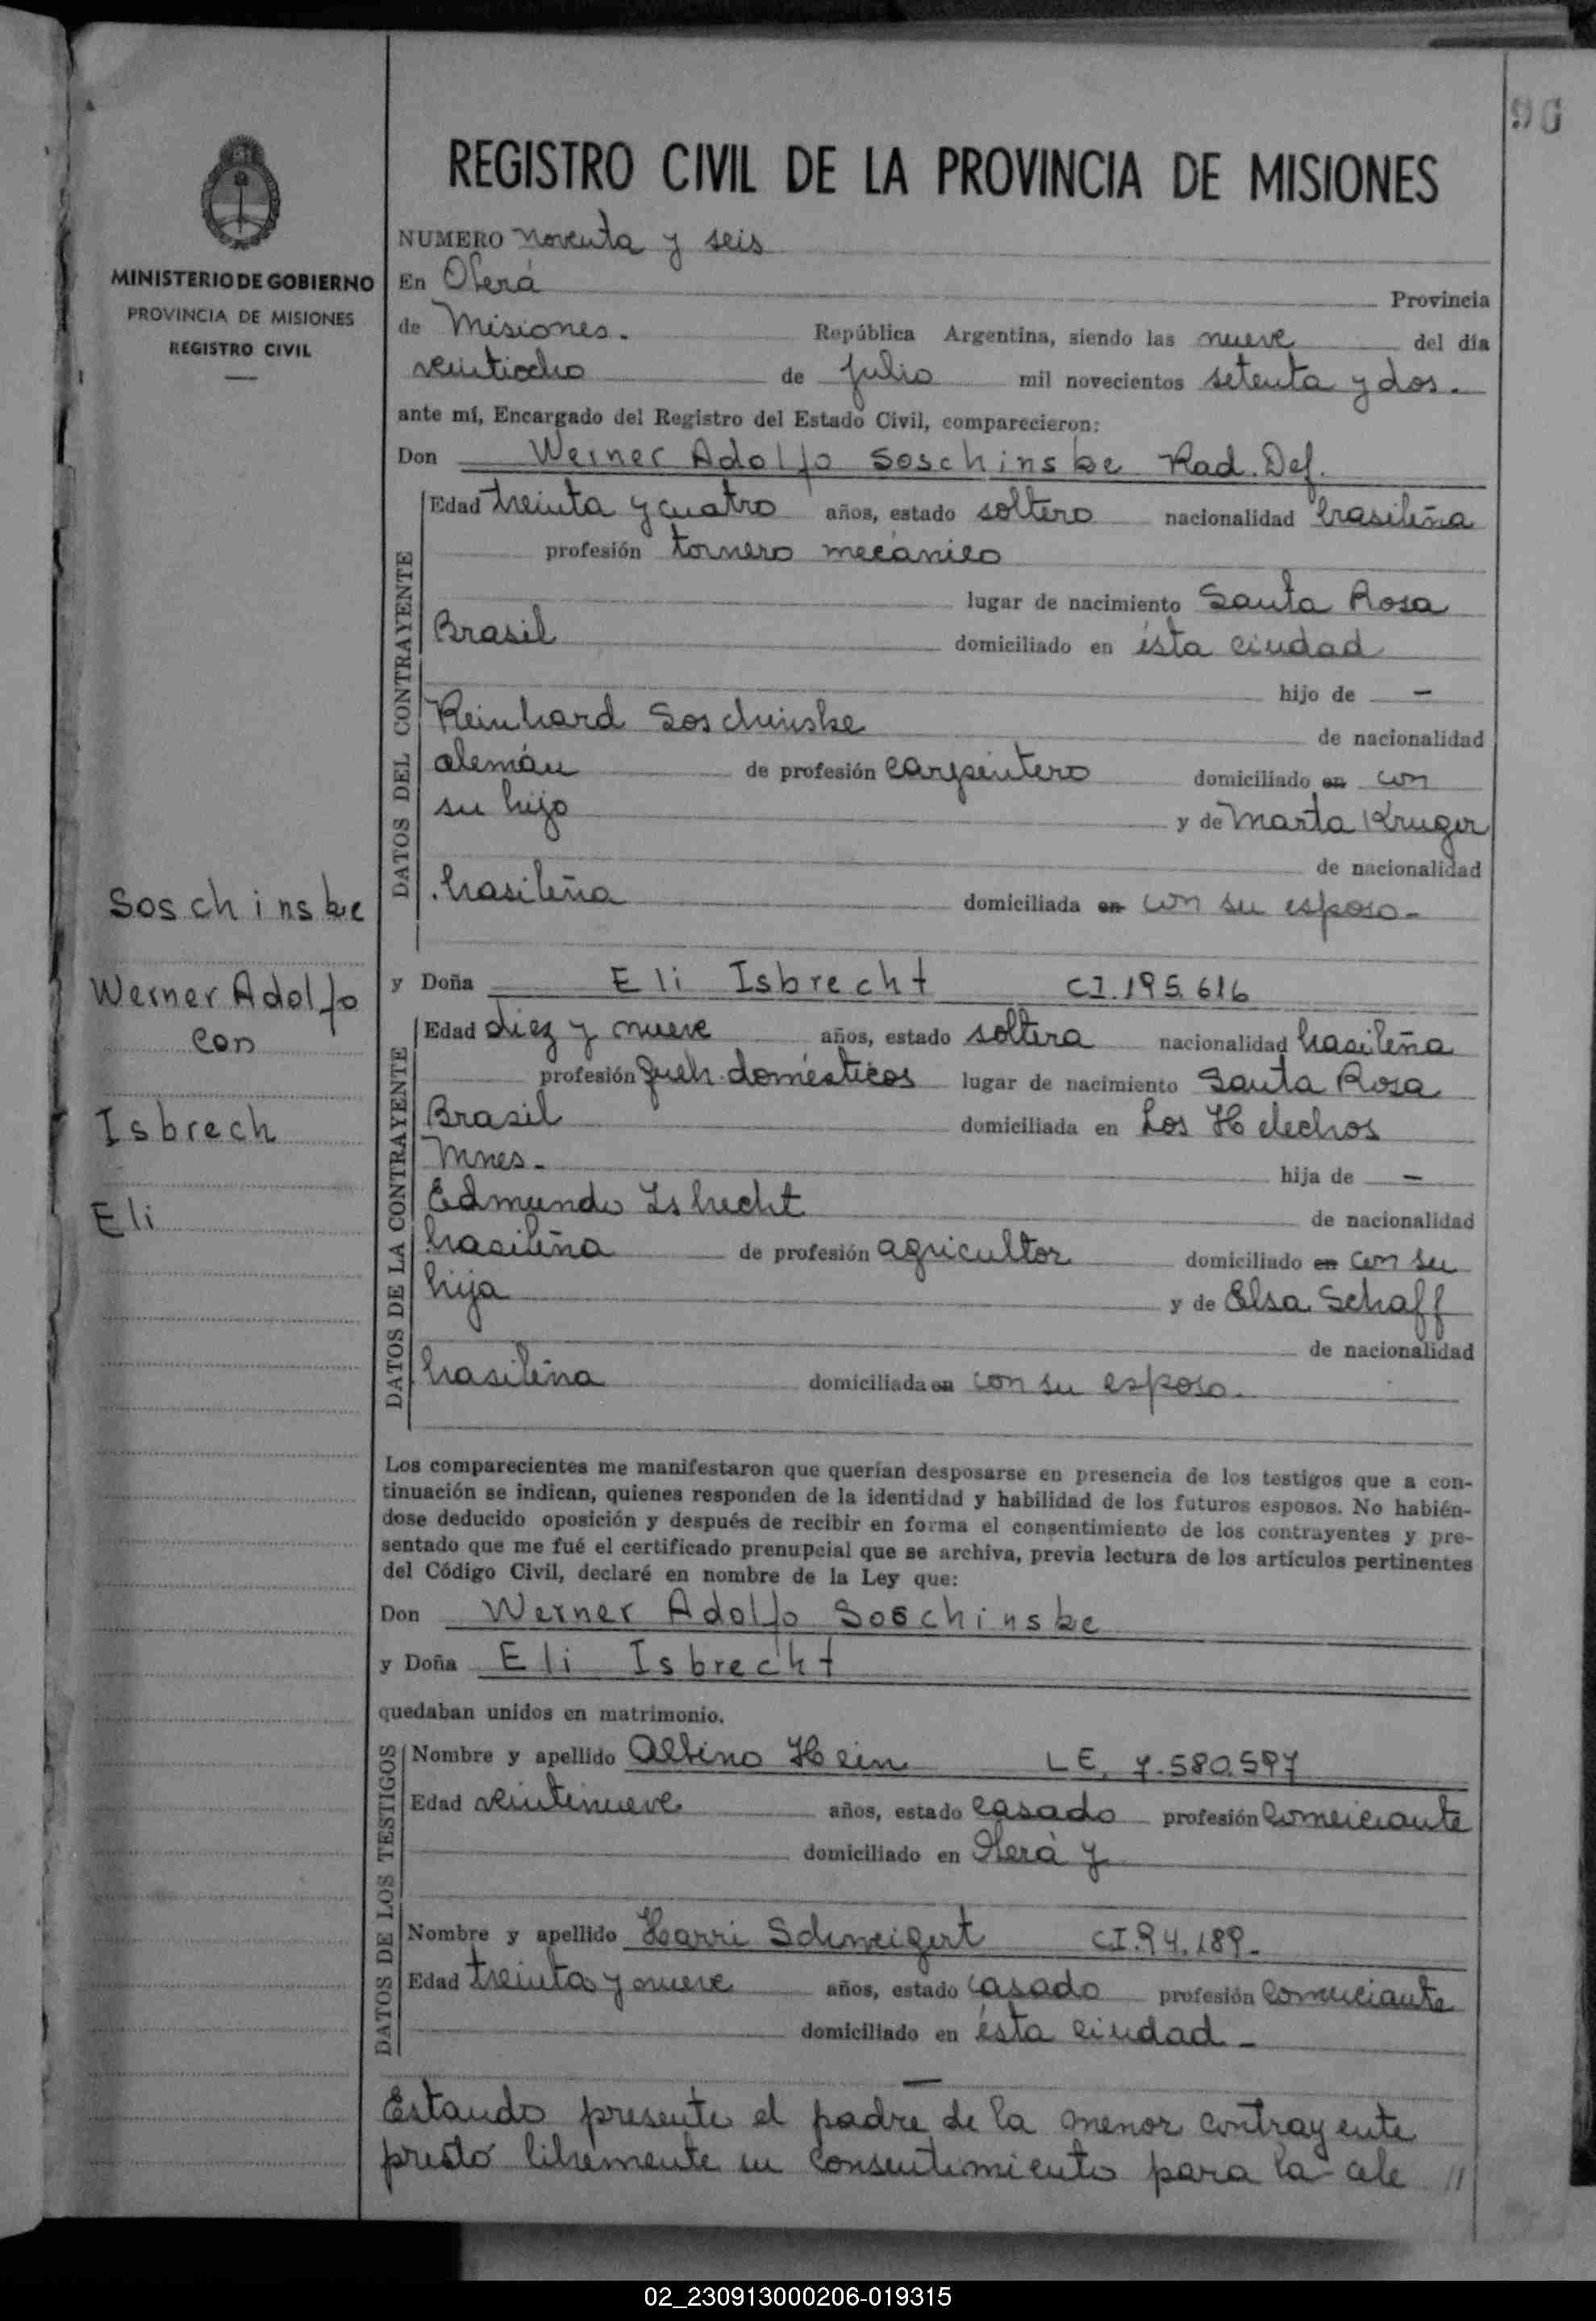 96
REGISTRO CIVIL DE LA PROVINCIA DE MISIONES
MINISTERIO DE GOBIERNO
PROVINCIA DE MISIONES
REGISTRO CIVIL
NUMERO noventa y seis
En Oberá Provincia
de Misiones. República Argentina, siendo las nueve del día
veintiocho de julio mil novecientos setenta y dos.
ante mí, Encargado del Registro del Estado Civil, comparecieron:
Don Werner Adolfo Soschinske Rad. Def.
DATOS DEL CONTRAYENTE
Edad treinta y cuatro años, estado soltero nacionalidad brasileña
profesión tornero mecánico
lugar de nacimiento Santa Rosa
Brasil domiciliado en ésta ciudad
hijo de —
Reinhard Soschinske de nacionalidad
alemán de profesión carpintero domiciliado en con
su hijo y de Marta Kruger
de nacionalidad
brasileña domiciliada en con su esposo-
Soschinske
Werner Adolfo
con
Isbrech
Eli
y Doña Eli Isbrecht CI.195.616
DATOS DE LA CONTRAYENTE
Edad diez y nueve años, estado soltera nacionalidad brasileña
profesión queh. domésticos lugar de nacimiento Santa Rosa
Brasil domiciliada en Los Helechos
Mnes- hija de —
Edmundo Isbrecht de nacionalidad
brasileña de profesión agricultor domiciliado en con su
hija y de Elsa Schaff
de nacionalidad
brasileña domiciliada en con su esposo.
Los comparecientes me manifestaron que querían desposarse en presencia de los testigos que a con-
tinuación se indican, quienes responden de la identidad y habilidad de los futuros esposos. No habién-
dose deducido oposición y después de recibir en forma el consentimiento de los contrayentes y pre-
sentado que me fué el certificado prenupcial que se archiva, previa lectura de los artículos pertinentes
del Código Civil, declaré en nombre de la Ley que:
Don Werner Adolfo Soschinske
y Doña Eli Isbrecht
quedaban unidos en matrimonio.
DATOS DE LOS TESTIGOS
Nombre y apellido Albino Hein LE. 7.580.597
Edad veintinueve años, estado casado profesión comerciante
domiciliado en Oberá y
Nombre y apellido Harri Schweigert CI.94.189-
Edad treinta y nueve años, estado casado profesión comerciante
domiciliado en ésta ciudad-
Estando presente el padre de la menor contrayente
prestó libremente su consentimiento para la cele //
02_230913000206-019315